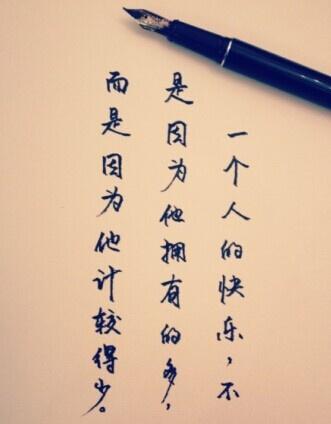 一个人的快乐,不
是因为他拥有的多,
而是因为他计较得少。